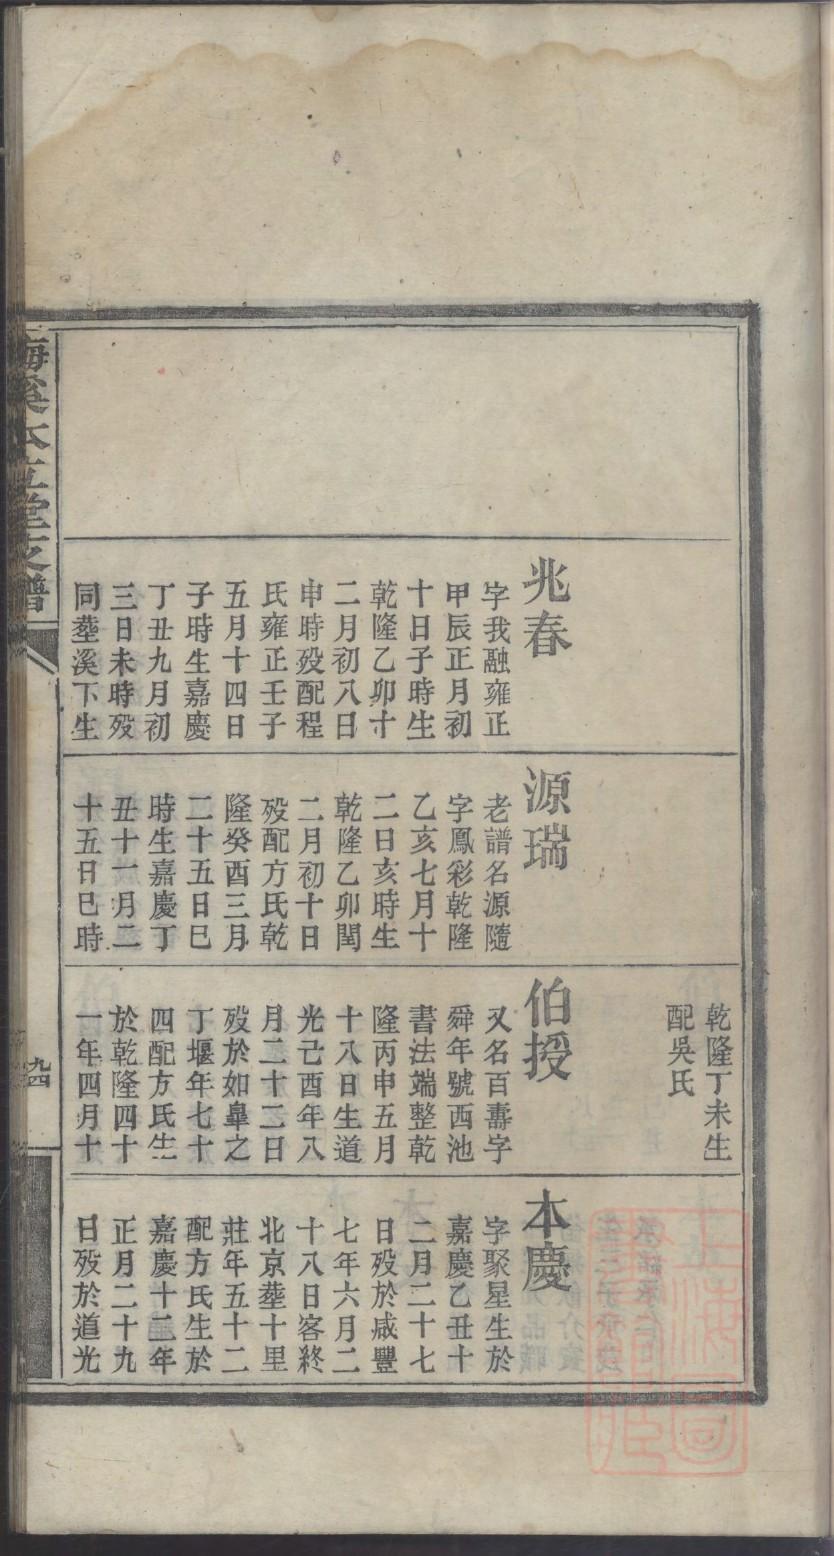 兆春
字我融雍正
甲辰正月初
十日子時生
乾隆乙卯十
二月初八日
申時殁配程
氏雍正壬子
五月十四日
子時生嘉慶
丁丑九月初
三日未時殁
同塟溪下生
源瑞
老譜名源隨
字鳳彩乾隆
乙亥七月十
二日亥時生
乾隆乙卯閏
二月初十日
殁配方氏乾
隆癸酉三月
二十五日巳
時生嘉慶丁
丑十一月二
十五日巳時
乾隆丁未生
配吳氏
伯授
又名百壽字
舜年號西池
書法端整乾
隆丙申五月
十八日生道
光己酉年八
月二十二日
殁於如臯之
丁堰年七十
四配方氏生
於乾隆四十
一年四月十
本慶
字聚星生於
嘉慶乙丑十
二月二十七
日殁於咸豐
七年六月二
十八日客終
北京塟十里
莊年五十二
配方氏生於
嘉慶十二年
正月二十九
日殁於道光
梅溪本立堂支譜
九四